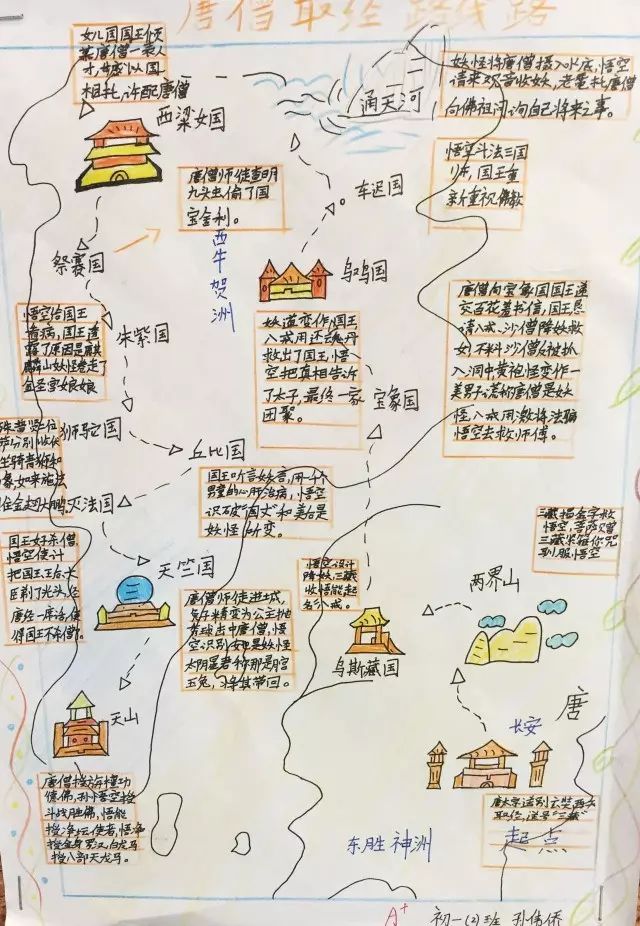 唐僧取经路线路
女儿国国王使
某唐僧一表人
才,甘愿以国
相托,许配唐僧
西梁女国
通天河
妖怪将唐僧摄入水底,悟空
请来观音收妖,老鼋托唐僧
向佛祖问询自己将来之事。
悟空斗法三国
师,国王重
新重视佛教
车迟国
唐僧师徒查明
九头虫偷了国
宝舍利。
西牛贺洲
祭赛国
乌鸡国
悟空给国王
看病,国王透
露了原因是麒
麟山妖怪卷走了
金圣宫娘娘
朱紫国
妖道变作国王
八戒用还魂丹
救出了国王,悟
空把真相告诉
了太子,最终一家
团聚。
宝象国
唐僧向宝象国国王递
交百花羞书信,国王恳
请八戒、沙僧降妖救
女,不料沙僧反被抓
入洞中黄袍怪变作一
美男子谎称唐僧是妖
怪八戒用激将法骗
悟空去救师傅。
狮驼国
萨分别收伏
坐骑青狮和
象,如来施法
住金翅大鹏
丘比国
国王听言妖言,用一千个
男童的心肝治病,悟空
识破"国丈"和美后是
妖怪所变。
灭法国
国王好杀僧
悟空使计
把国王、王后、大
臣剃了光头,念
得国王不杀僧。
天竺国
唐僧师徒进城,
女子精变为公主抛
秀球击中唐僧,悟
空识别女也是妖怪
太阴星君称那是月宫
玉兔,将其带回。
悟空设计
降妖,三藏
收悟能起
名八戒。
乌斯藏国
三藏揭金字救
悟空,菩萨又曾
三藏紧箍你咒
制服悟空
两界山
唐
长安
唐太宗送别玄奘西去
取经,送号"三藏"
起点
天山
唐僧授旃檀功
德佛,孙悟空授
斗战胜佛,悟能
授净坛使者,悟净
授金身罗汉,白龙马
授八部天龙马。
东胜神洲
A+
初一(2)班 孙伟侨